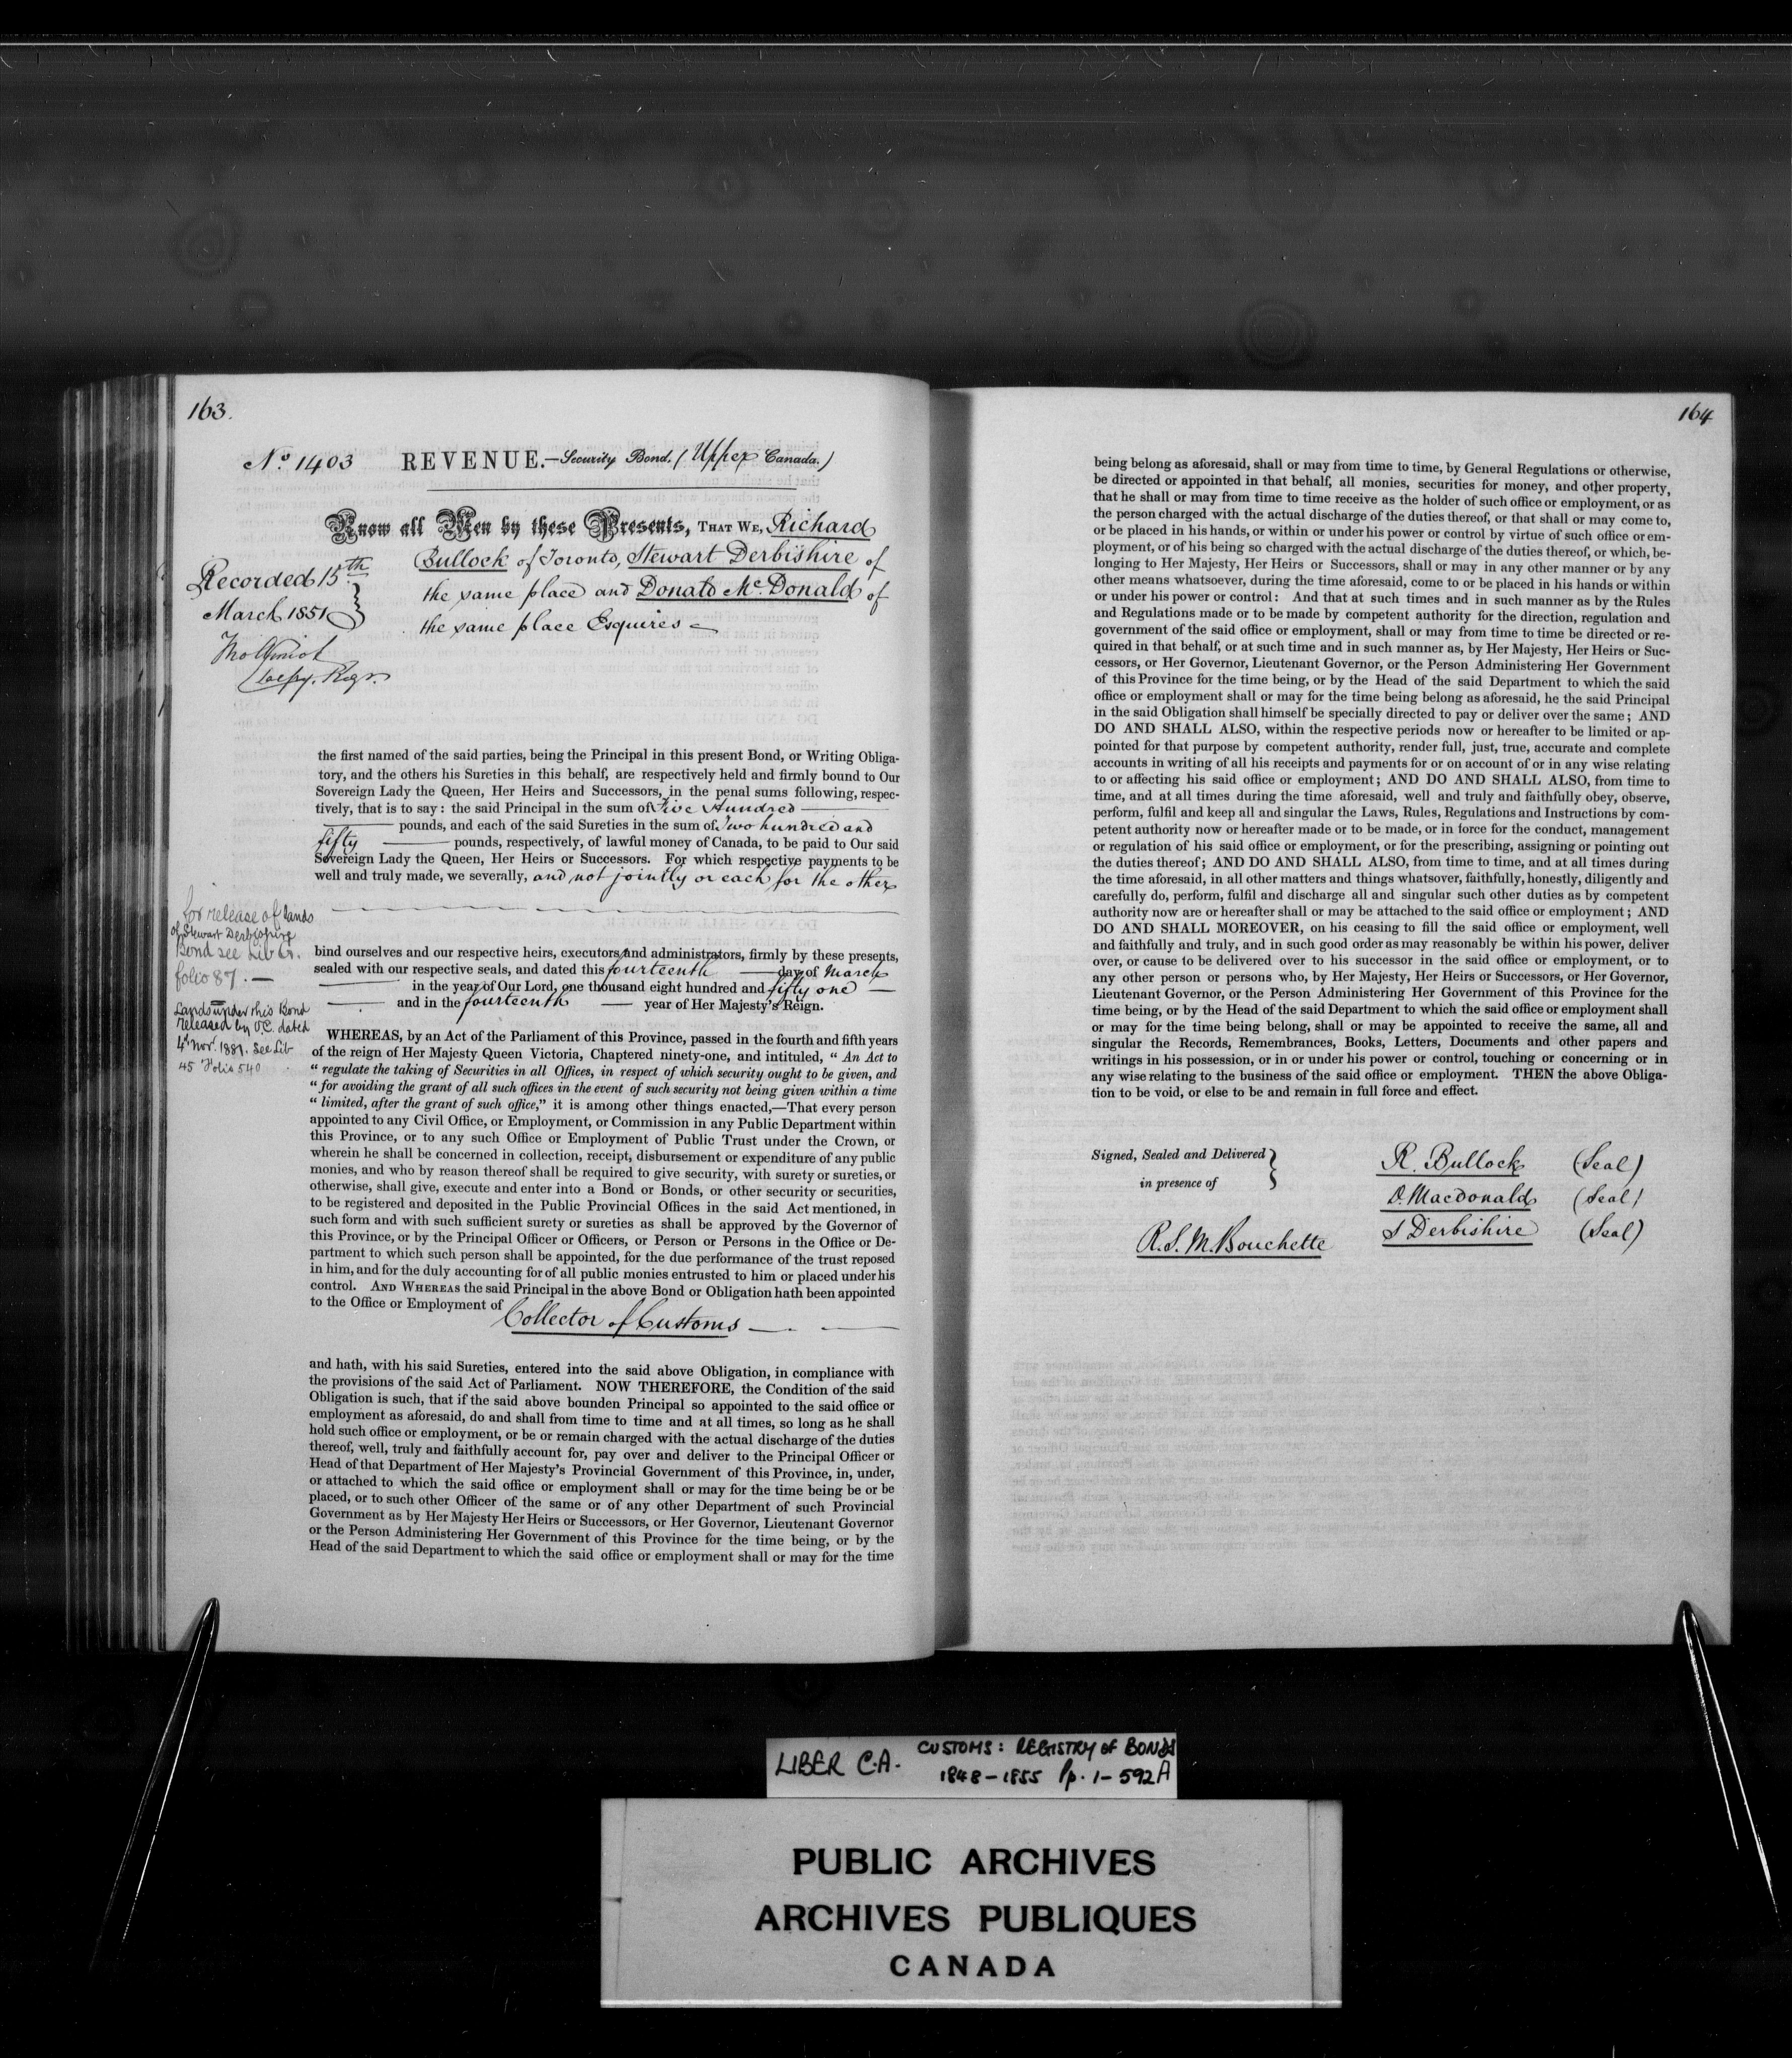 163.
No. 1403 REVENUE.—Security Bond. (Upper Canada.)
Know all Men by these Presents, THAT WE, Richard
Bullock of Toronto, Stewart Derbishire of
the same place and Donald Mc.Donald of
the same place Esquires
Recorded 15th
March 1851
Depy. Regr.
the first named of the said parties, being the Principal in this present Bond, or Writing Obliga-
tory, and the others his Sureties in this behalf, are respectively held and firmly bound to Our
Sovereign Lady the Queen, Her Heirs and Successors, in the penal sums following, respec-
tively, that is to say: the said Principal in the sum of Five Hundred
pounds, and each of the said Sureties in the sum of Two hundred and
fifty pounds, respectively, of lawful money of Canada, to be paid to Our said
Sovereign Lady the Queen, Her Heirs or Successors. For which respective payments to be
well and truly made, we severally, and not jointly or each for the other
for release of lands
of Stewart Derbishire
Bond see Lib
folio 87.—
Lands under this Bond
released by O.C. dated
4th Nov. 1881. See Lib
45 Folio 540
bind ourselves and our respective heirs, executors and administrators, firmly by these presents,
sealed with our respective seals, and dated this fourteenth day of March
in the year of Our Lord, one thousand eight hundred and fifty one
and in the fourteenth year of Her Majesty's Reign.
WHEREAS, by an Act of the Parliament of this Province, passed in the fourth and fifth years
of the reign of Her Majesty Queen Victoria, Chaptered ninety-one, and intituled, "An Act to
"regulate the taking of Securities in all Offices, in respect of which security ought to be given, and
"for avoiding the grant of all such offices in the event of such security not being given within a time
"limited, after the grant of such office," it is among other things enacted,—That every person
appointed to any Civil Office, or Employment, or Commission in any Public Department within
this Province, or to any such Office or Employment of Public Trust under the Crown, or
wherein he shall be concerned in collection, receipt, disbursement or expenditure of any public
monies, and who by reason thereof shall be required to give security, with surety or sureties, or
otherwise, shall give, execute and enter into a Bond or Bonds, or other security or securities,
to be registered and deposited in the Public Provincial Offices in the said Act mentioned, in
such form and with such sufficient surety or sureties as shall be approved by the Governor of
this Province, or by the Principal Officer or Officers, or Person or Persons in the Office or De-
partment to which such person shall be appointed, for the due performance of the trust reposed
in him, and for the duly accounting for of all public monies entrusted to him or placed under his
control. AND WHEREAS the said Principal in the above Bond or Obligation hath been appointed
to the Office or Employment of
Collector of Customs
and hath, with his said Sureties, entered into the said above Obligation, in compliance with
the provisions of the said Act of Parliament. NOW THEREFORE, the Condition of the said
Obligation is such, that if the said above bounden Principal so appointed to the said office or
employment as aforesaid, do and shall from time to time and at all times, so long as he shall
hold such office or employment, or be or remain charged with the actual discharge of the duties
thereof, well, truly and faithfully account for, pay over and deliver to the Principal Officer or
Head of that Department of Her Majesty's Provincial Government of this Province, in, under,
or attached to which the said office or employment shall or may for the time being be or be
placed, or to such other Officer of the same or of any other Department of such Provincial
Government as by Her Majesty Her Heirs or Successors, or Her Governor, Lieutenant Governor
or the Person Administering Her Government of this Province for the time being, or by the
Head of the said Department to which the said office or employment shall or may for the time
164
being belong as aforesaid, shall or may from time to time, by General Regulations or otherwise,
be directed or appointed in that behalf, all monies, securities for money, and other property,
that he shall or may from time to time receive as the holder of such office or employment, or as
the person charged with the actual discharge of the duties thereof, or that shall or may come to,
or be placed in his hands, or within or under his power or control by virtue of such office or em-
ployment, or of his being so charged with the actual discharge of the duties thereof, or which, be-
longing to Her Majesty, Her Heirs or Successors, shall or may in any other manner or by any
other means whatsoever, during the time aforesaid, come to or be placed in his hands or within
or under his power or control: And that at such times and in such manner as by the Rules
and Regulations made or to be made by competent authority for the direction, regulation and
government of the said office or employment, shall or may from time to time be directed or re-
quired in that behalf, or at such time and in such manner as, by Her Majesty, Her Heirs or Suc-
cessors, or Her Governor, Lieutenant Governor, or the Person Administering Her Government
of this Province for the time being, or by the Head of the said Department to which the said
office or employment shall or may for the time being belong as aforesaid, he the said Principal
in the said Obligation shall himself be specially directed to pay or deliver over the same; AND
DO AND SHALL ALSO, within the respective periods now or hereafter to be limited or ap-
pointed for that purpose by competent authority, render full, just, true, accurate and complete
accounts in writing of all his receipts and payments for or on account of or in any wise relating
to or affecting his said office or employment; AND DO AND SHALL ALSO, from time to
time, and at all times during the time aforesaid, well and truly and faithfully obey, observe,
perform, fulfil and keep all and singular the Laws, Rules, Regulations and Instructions by com-
petent authority now or hereafter made or to be made, or in force for the conduct, management
or regulation of his said office or employment, or for the prescribing, assigning or pointing out
the duties thereof; AND DO AND SHALL ALSO, from time to time, and at all times during
the time aforesaid, in all other matters and things whatsover, faithfully, honestly, diligently and
carefully do, perform, fulfil and discharge all and singular such other duties as by competent
authority now are or hereafter shall or may be attached to the said office or employment; AND
DO AND SHALL MOREOVER, on his ceasing to fill the said office or employment, well
and faithfully and truly, and in such good order as may reasonably be within his power, deliver
over, or cause to be delivered over to his successor in the said office or employment, or to
any other person or persons who, by Her Majesty, Her Heirs or Successors, or Her Governor,
Lieutenant Governor, or the Person Administering Her Government of this Province for the
time being, or by the Head of the said Department to which the said office or employment shall
or may for the time being belong, shall or may be appointed to receive the same, all and
singular the Records, Remembrances, Books, Letters, Documents and other papers and
writings in his possession, or in or under his power or control, touching or concerning or in
any wise relating to the business of the said office or employment. THEN the above Obliga-
tion to be void, or else to be and remain in full force and effect.
Signed, Sealed and Delivered
in presence of
R. S. M. Bouchette
R. Bullock (Seal)
D. Macdonald (Seal)
S Derbishire (Seal)
LIBER C.A. CUSTOMS: REGISTRY OF BONDS
1848-1855 Pp. 1-592A
PUBLIC ARCHIVES
ARCHIVES PUBLIQUES
CANADA